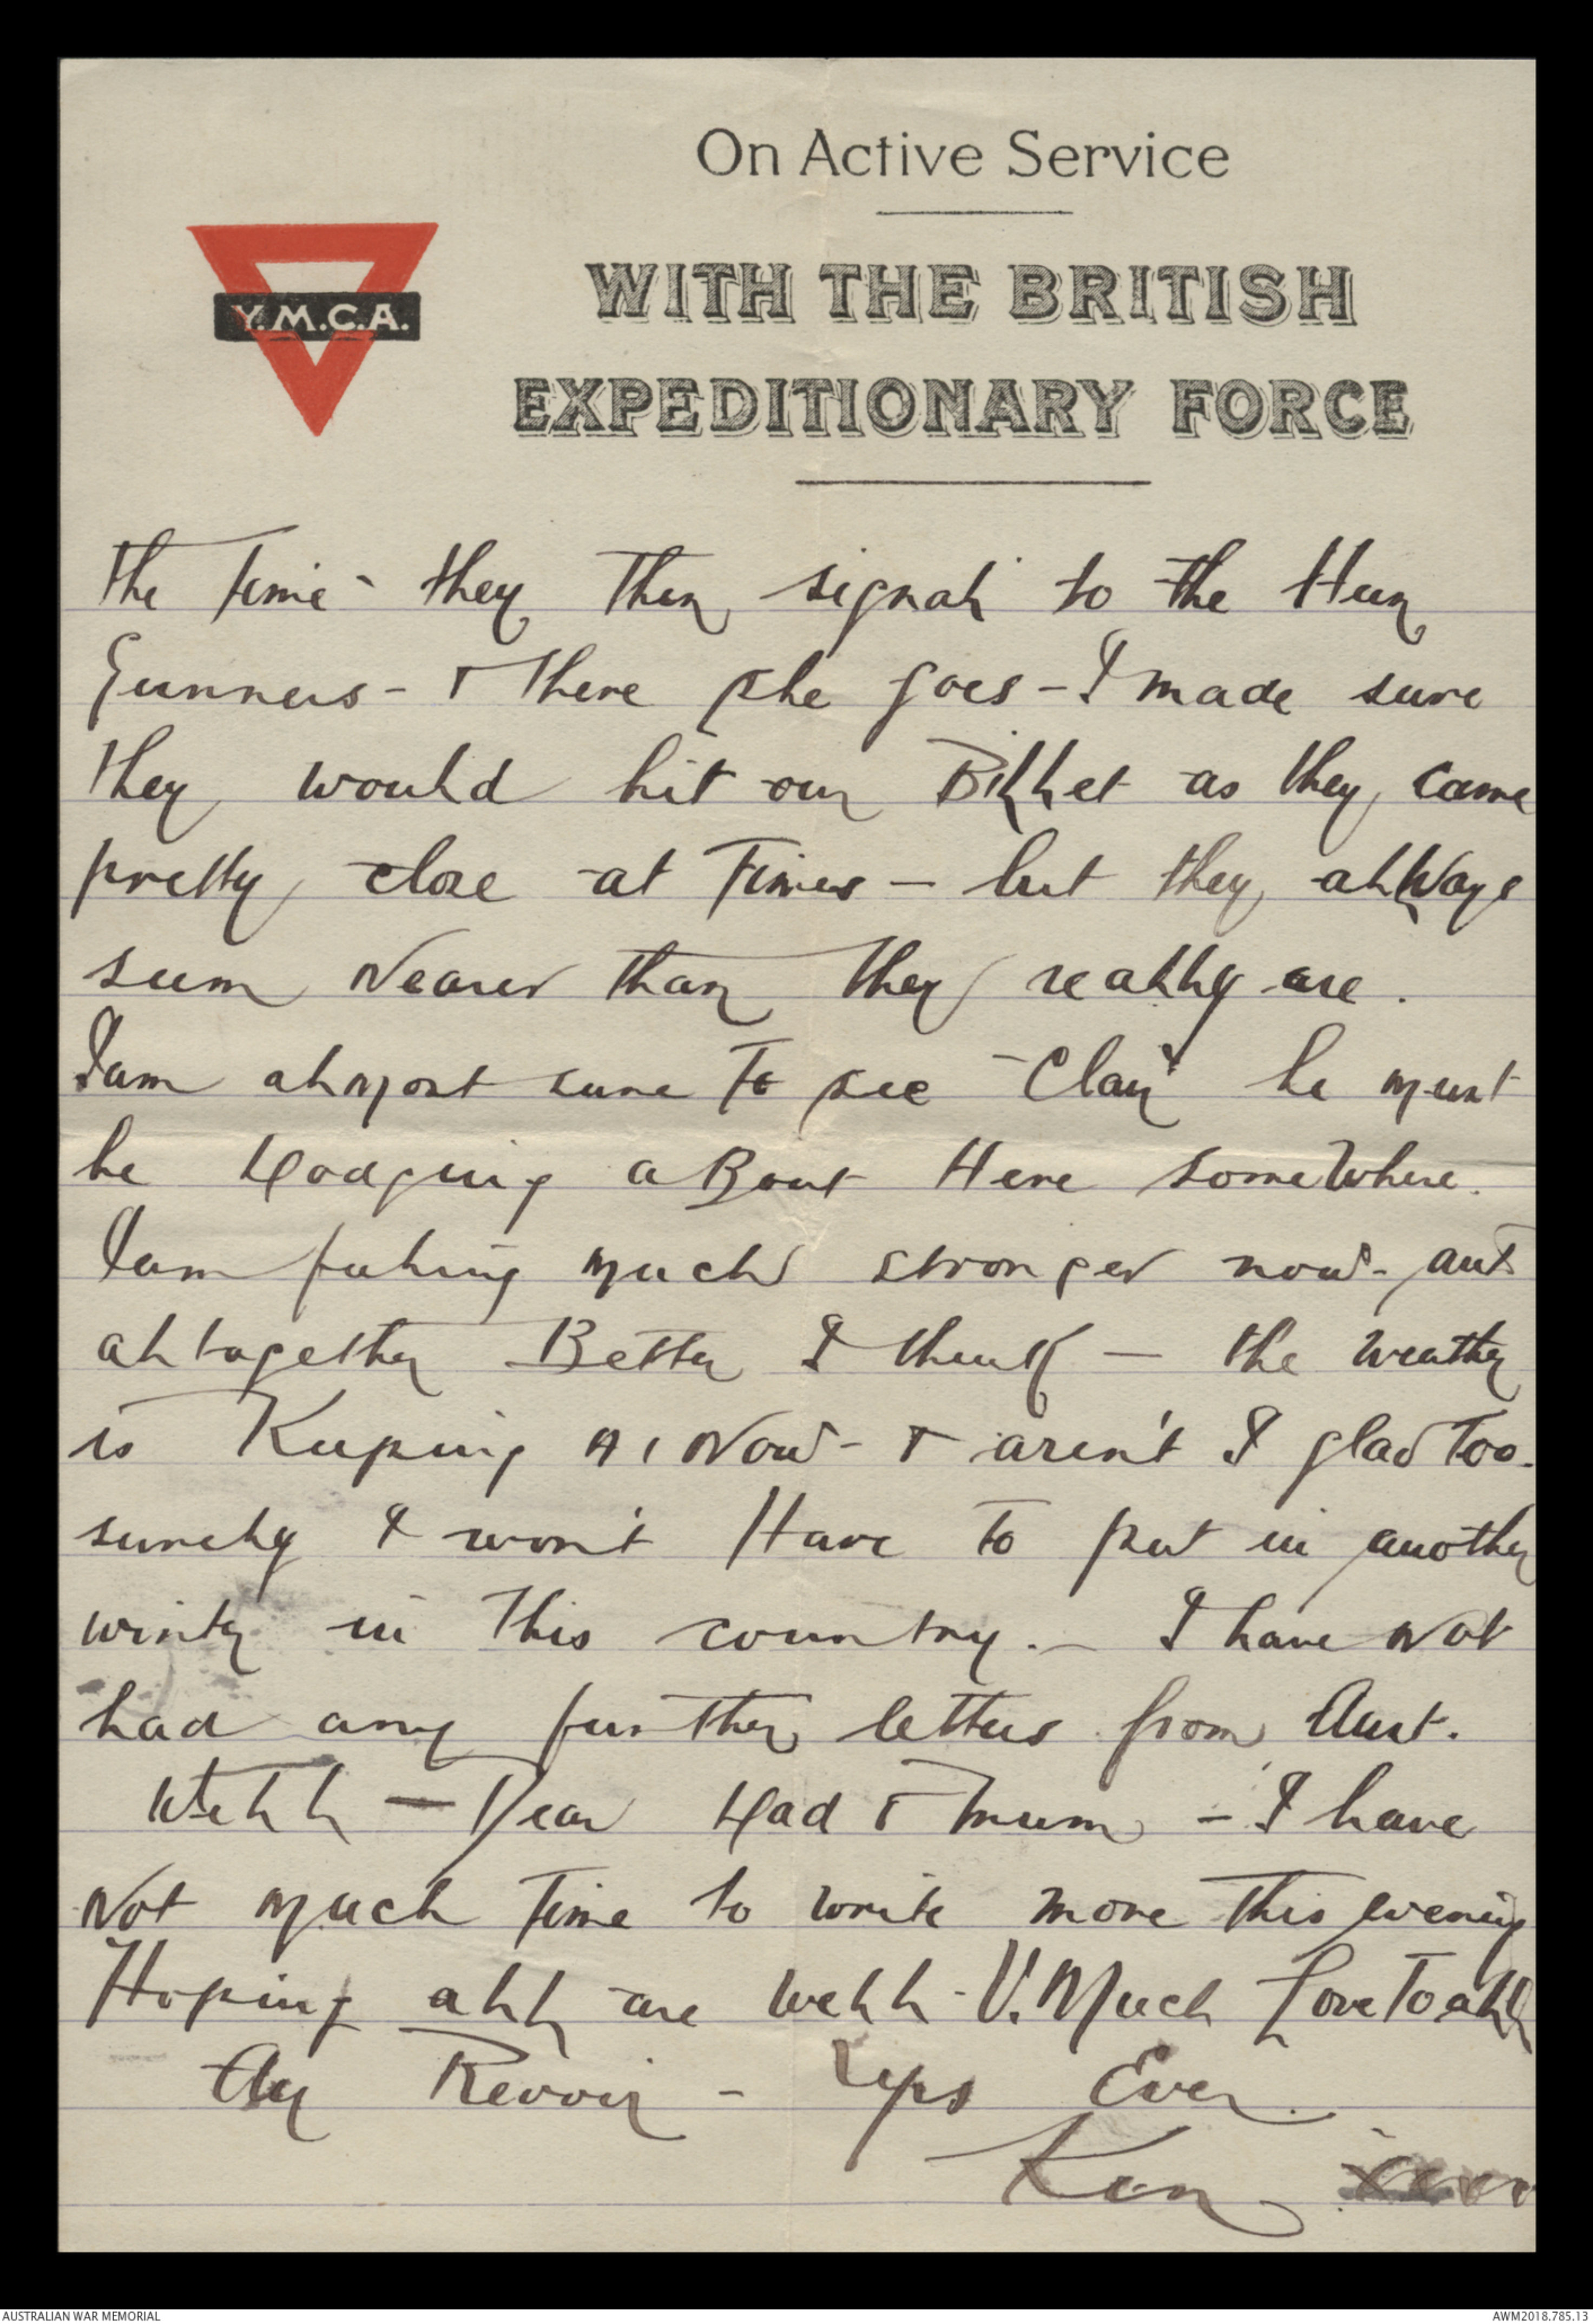 On Active Service
WITH THE BRITISH
EXPEDITIONARY FORCE
Y.M.C.A.
the time - they then signal to the Hun
Gunners - & there she goes - I made sure
they would hit our Billet as they came
pretty close at Times - but they allways
seem Nearer than they really are.
I am almost sure to see "Clay" he must
be dodging aBout Here someWhere.
I am feeling much stronger now - and
altogether Better I think - the weather
is Keeping A1 Now - & aren't I glad Too.
surely I won't Have to put in another
winter in This country. - I have Not
had any further letters from Aust.
Well - Dear Dad & Mum - I have
Not much Time to write more this evening
Hoping all are well - V. Much Love To all
Au Revoir - Yrs Ever.
Ken xxxx
AUSTRALIAN WAR MEMORIAL
AWM2018.785.13